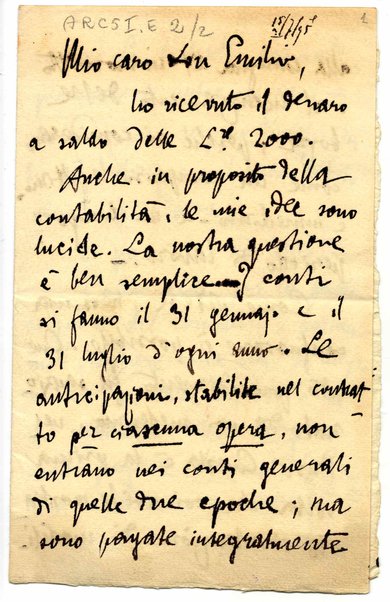 ARC5I.E 2/2
15/7/95
1
Mio caro Don Emilio,
ho ricevuto il denaro
a saldo delle Lre 2000.
Anche in proposito della
contabilità, le mie idee sono
lucide. La nostra questione
è ben semplice. I conti
si fanno il 31 gennaj. e il
31 luglio d'ogni anno. Le
anticipazioni, stabilite nel contrat
to per ciascuna opera, non
entrano nei conti generali
di quelle due epoche; ma
sono pagate integralmente